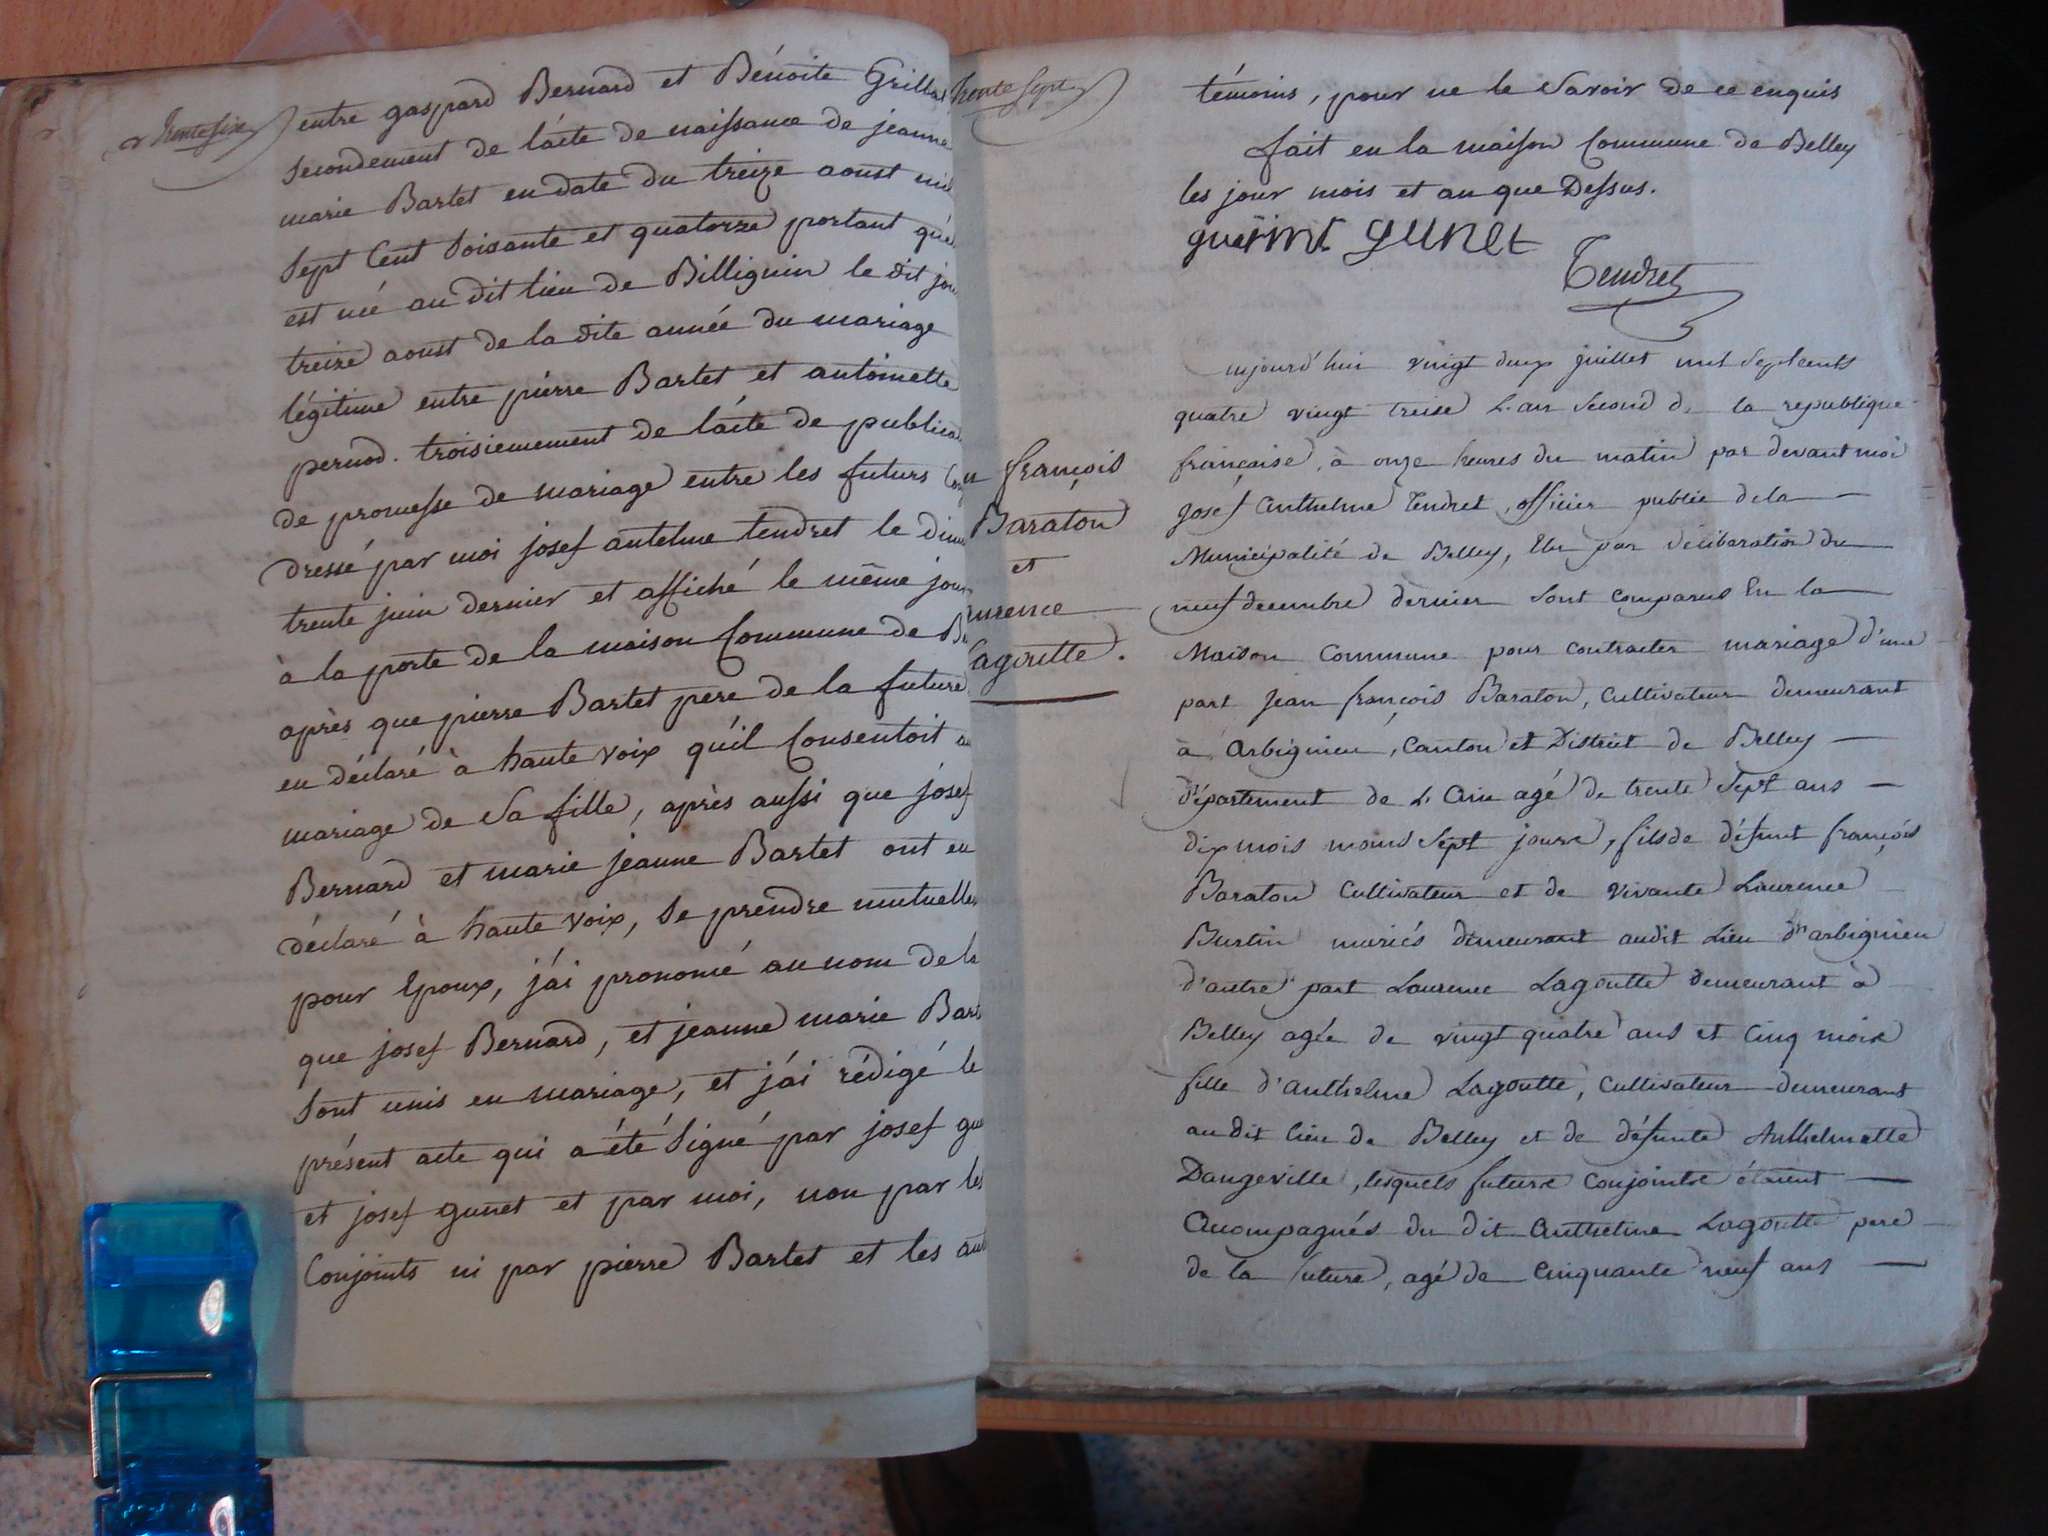 trente six
entre gaspard Bernard et Bénoite Grilla
secondement de l'acte de naissance de jeanne
marie Bartet en date du treize aoust
sept Cent soixante et quatorze portant
est né au dit lieu de Billignin le dit
treize aoust de la dite année du mariage
légitime entre pierre Bartet et antoinette
pernod. troisiemement de l'acte de publica
de promesse de mariage entre les futurs
dressé par moi josef antelme tendret le
trente juin dernier et affiché le même jour
à la porte de la maison Commune de B
après que pierre Bartet pere de la future
eu déclaré à haute voix qu'il Consentoit
mariage de sa fille, après aussi que josef
Bernard et marie jeanne Bartet ont eu
déclaré à haute voix, se prendre mutuelle
pour Epoux, j'ai prononcé au nom de la
que josef Bernard, et jeanne marie Bart
sont unis en mariage, et j'ai rédigé le
présent acte qui a été signé par josef gue
et josef gunet et par moi, non par les
Conjoints ni par pierre Bartet et les aut
trente sept
témoins, pour ne le savoir de ce enquis
fait en la maison Commune de Belley
les jour mois et an que Dessus.
gunet
Tendret
n françois
Baraton
et
urence
agoutte.
aujourd'hui vingt deux juillet mil sept cents
quatre vingt treise L'an second de la republique
française, à onze heures du matin par devant moi
josef Anthelme Tendret, officier public de la
Municipalité de Belley, Elu par déliberation du
neuf decembre dernier sont comparus En la
Maison Commune pour contracter mariage d'une
part jean françois Baraton, Cultivateur demeurant
à Arbignieu, Canton et District de Belley
département de L'Ain agé de trente sept ans
dix mois moins sept jours, fils de défunt françois
Baraton Cultivateur et de vivante Laurence
Burtin mariés demeurant audit Lieu d'arbignieu
d'autre part Laurence Lagoutte demeurant à
Belley agée de vingt quatre ans et Cinq mois
fille d'anthelme Lagoutte, Cultivateur demeurant
au dit lieu de Belley et de défunte Anthelmette
Dangeville, lesquels futurs Conjoints étaient
Accompagnés du dit Anthelme Lagoutte pere
de la future, agé de Cinquante neuf ans